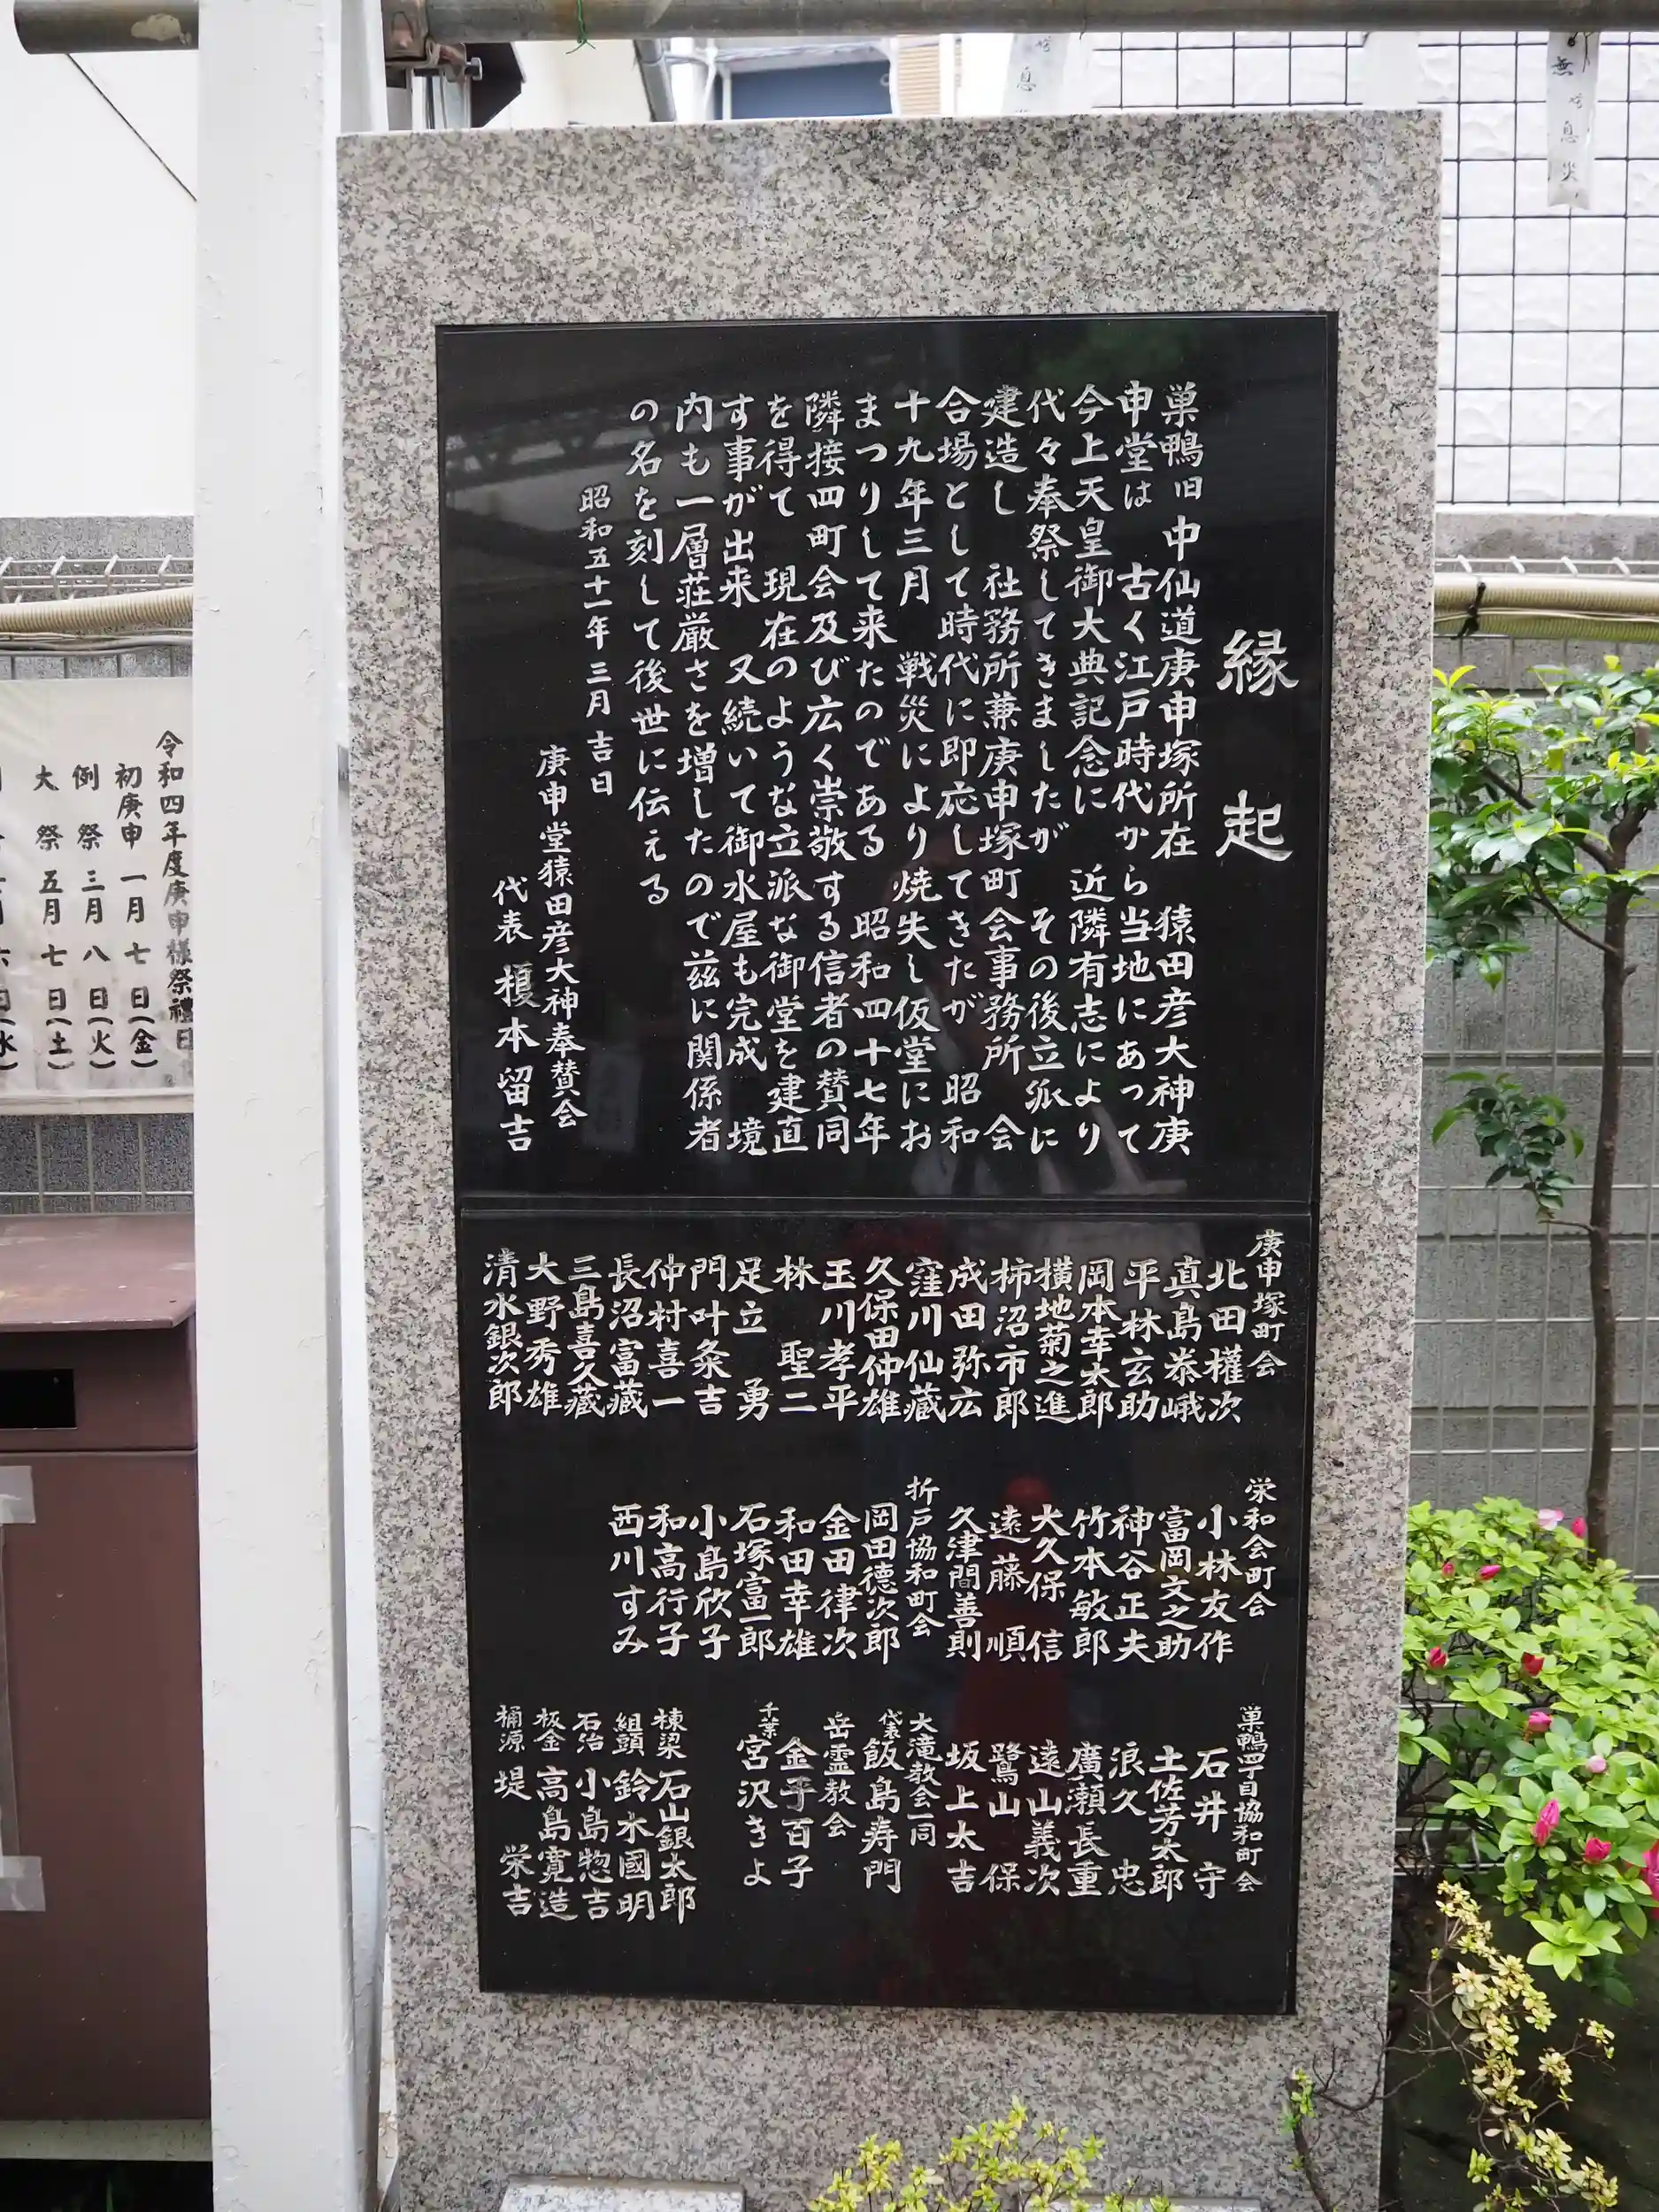 縁起
巣鴨旧中仙道庚申塚所在　猿田彦大神庚
申堂は　古く江戸時代から当地にあって
今上天皇御大典記念に　近隣有志により
代々奉祭してきましたが　その後立派に
建造し　社務所兼庚申塚町会事務所　会
合場として時代に即応してきたが　昭和
十九年三月　戦災により焼失し仮堂にお
まつりして来たのである　昭和四十七年
隣接四町会及び広く崇敬する信者の賛同
を得て　現在のような立派な御堂を建直
す事が出来　又続いて御水屋も完成　境
内も一層荘厳さを増したので茲に関係者
の名を刻して後世に伝える
昭和五十一年三月吉日
庚申堂猿田彦大神奉賛会
代表　榎本留吉
庚申塚町会
北田権次
真島泰峨
平林玄助
岡本幸太郎
横地菊之進
柿沼市郎
成田弥広
窪川仙蔵
久保田仲雄
玉川孝平
林　聖二
足立　勇
門叶粂吉
仲村喜一
長沼富蔵
三島喜久蔵
大野秀雄
清水銀次郎
栄和会町会
小林友作
富岡文之助
神谷正夫
竹本敏郎
大久保　信
遠藤　順
久津間善則
折戸協和町会
岡田徳次郎
金田律次
和田幸雄
石塚富一郎
小島欣子
和高行子
西川すみ
巣鴨四丁目協和町会
石井　守
土佐芳太郎
浪久　忠
廣瀬長重
遠山義次
鷺山　保
坂上太吉
大滝教会一同
代表　飯島寿門
岳霊教会
金子百子
千葉　宮沢きよ
棟梁　石山銀太郎
組頭　鈴木國明
石治　小島惣吉
板金　高島寛造
桶源　堤　栄吉
令和四年度庚申様祭禮日
初庚申　一月　七　日(金)
例　祭　三月　八　日(火)
大　祭　五月　七　日(土)
無
息
災
息